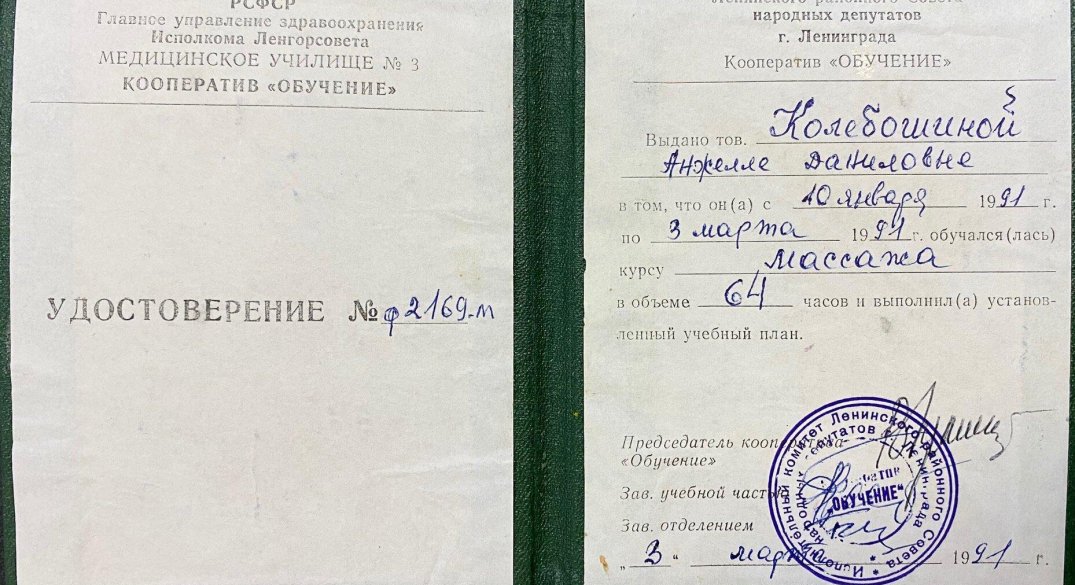 РСФСР
Главное управление здравоохранения
Исполкома Ленгорсовета
МЕДИЦИНСКОЕ УЧИЛИЩЕ № 3
КООПЕРАТИВ «ОБУЧЕНИЕ»
УДОСТОВЕРЕНИЕ № ф2169-м
Ленинского районного Совета
народных депутатов
г. Ленинграда
Кооператив «ОБУЧЕНИЕ»
Выдано тов. Колебошиной
Анжелле Даниловне
в том, что он(а) с 10 января 1991 г.
по 3 марта 1991 г. обучался(лась)
курсу массажа
в объеме 64 часов и выполнил(а) установ-
ленный учебный план.
Председатель кооператива
«Обучение»
Зав. учебной частью
Зав. отделением
„3" марта 1991 г.
Исполнительный комитет Ленинского районного Совета
народных депутатов
"ОБУЧЕНИЕ"